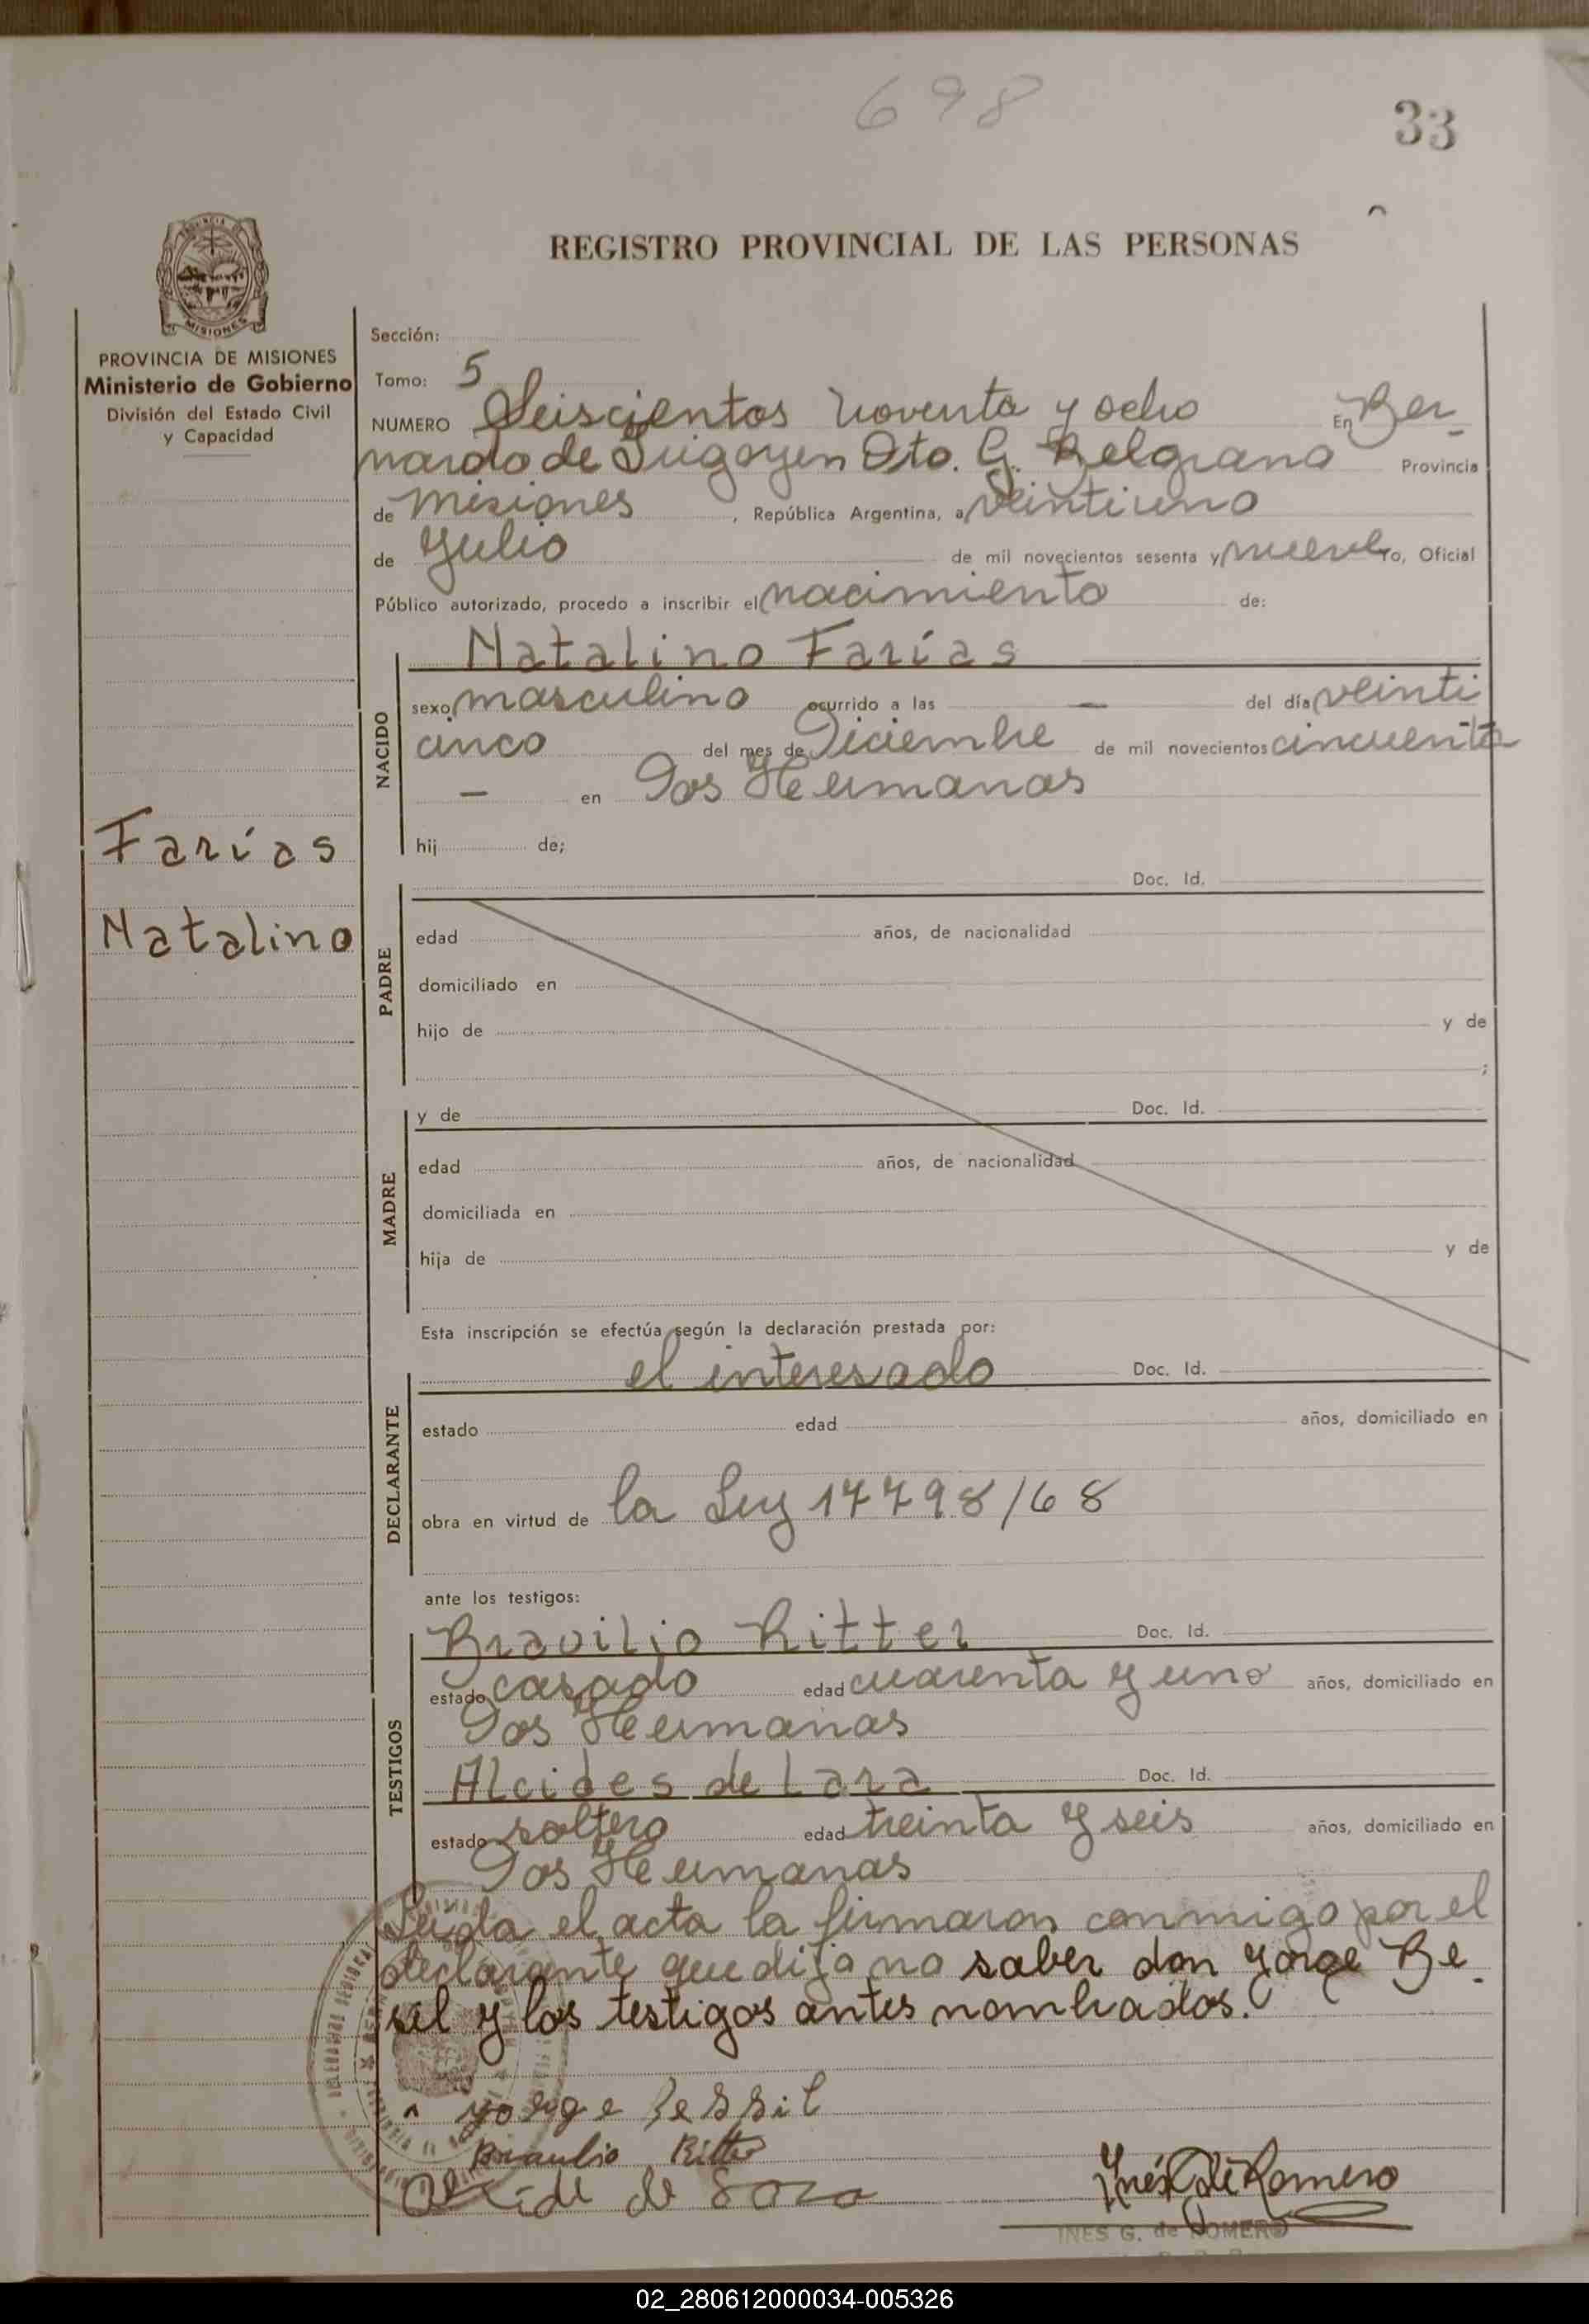 698
33
REGISTRO PROVINCIAL DE LAS PERSONAS
PROVINCIA DE MISIONES
Ministerio de Gobierno
División del Estado Civil
y Capacidad
Farías
Natalino
Sección:
Tomo: 5
NUMERO Seiscientos noventa y ocho En Ber-
nardo de Irigoyen Dto. G. Belgrano Provincia
de Misiones, República Argentina, a veintiuno
de Julio de mil novecientos sesenta y nueve Yo, Oficial
Público autorizado, procedo a inscribir el nacimiento de:
NACIDO
Natalino Farías
sexo masculino ocurrido a las — del día veinti
cinco del mes de Diciembre de mil novecientos cincuenta
— en Dos Hermanas
hij de;
PADRE
Doc. Id.
edad años, de nacionalidad
domiciliado en
hijo de y de
;
MADRE
y de Doc. Id.
edad años, de nacionalidad
domiciliada en
hija de y de
Esta inscripción se efectúa según la declaración prestada por:
DECLARANTE
el interesado Doc. Id.
estado edad años, domiciliado en
obra en virtud de la Ley 17798/68
ante los testigos:
TESTIGOS
Bravilio Ritter Doc. Id.
estado casado edad cuarenta y uno años, domiciliado en
Dos Hermanas
Alcides de Lara Doc. Id.
estado soltero edad treinta y seis años, domiciliado en
Dos Hermanas
Leida el acta la firmaron conmigo por el
declarante que dijo no saber don Jorge Be-
sel y los testigos antes nombrados.
Yorge Bessil
Braulio Ritter
Inés G. de Romero
INES G. de ROMERO
02_280612000034-005326